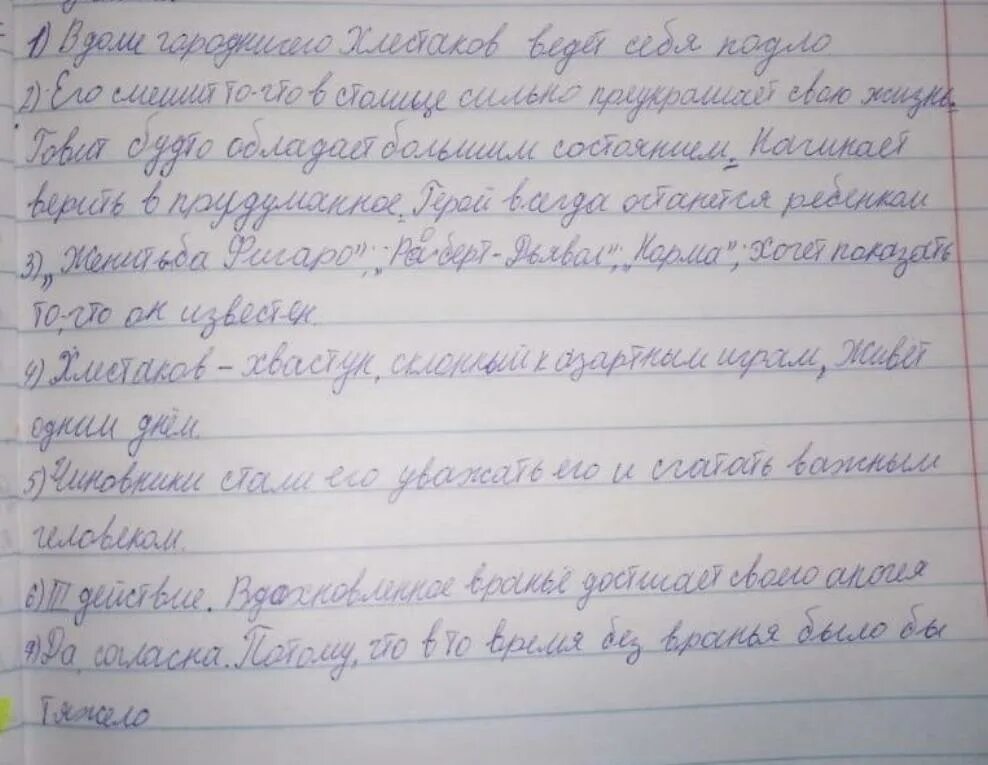 1) В доли городничего Хлестаков ведёт себя подло
2) Его смешит то-что в столице сильно приукрашает свою жизнь.
Говит будто обладает большим состоянием. Начинает
верить в прудуманное. Герой всегда останется ребенком
3) „Женитьба Фигаро"; „Роберт-Дьявол"; „Норма"; Хочет показать
то,что он известен.
4) Хлестаков – хвастун, склонный к азартным играм, Живёт
одним днём.
5) Чиновники стали его уважать его и считать важным
человеком.
6) III действие. Вдохновленное враньё достигает своего апогея
7) Да, согласна. Потому, что в то время без вранья было бы
тяжело